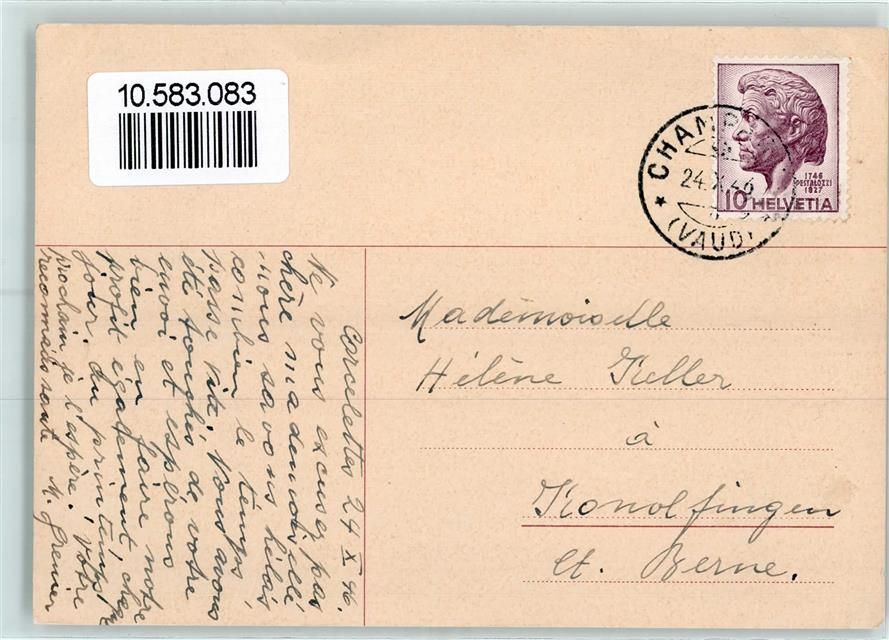 10.583.083
CHAMP
24.X.46
(VAUD)
1746
PESTALOZZI
1827
10 HELVETIA
Corcelettes 24 X 46.
Ne vous excusez pas
chère mademoiselle
nous savons hélas
combien le temps
passe vite! Vous avons
été touchés de votre
envoi et espérons
bien en faire notre
profit également, chez
jour. du printemps
prochain je l'espère! Vôtre
reconnaissante M. Grenier
Mademoiselle
Hélène Keller
à
Konolfingen
Ct. Berne.